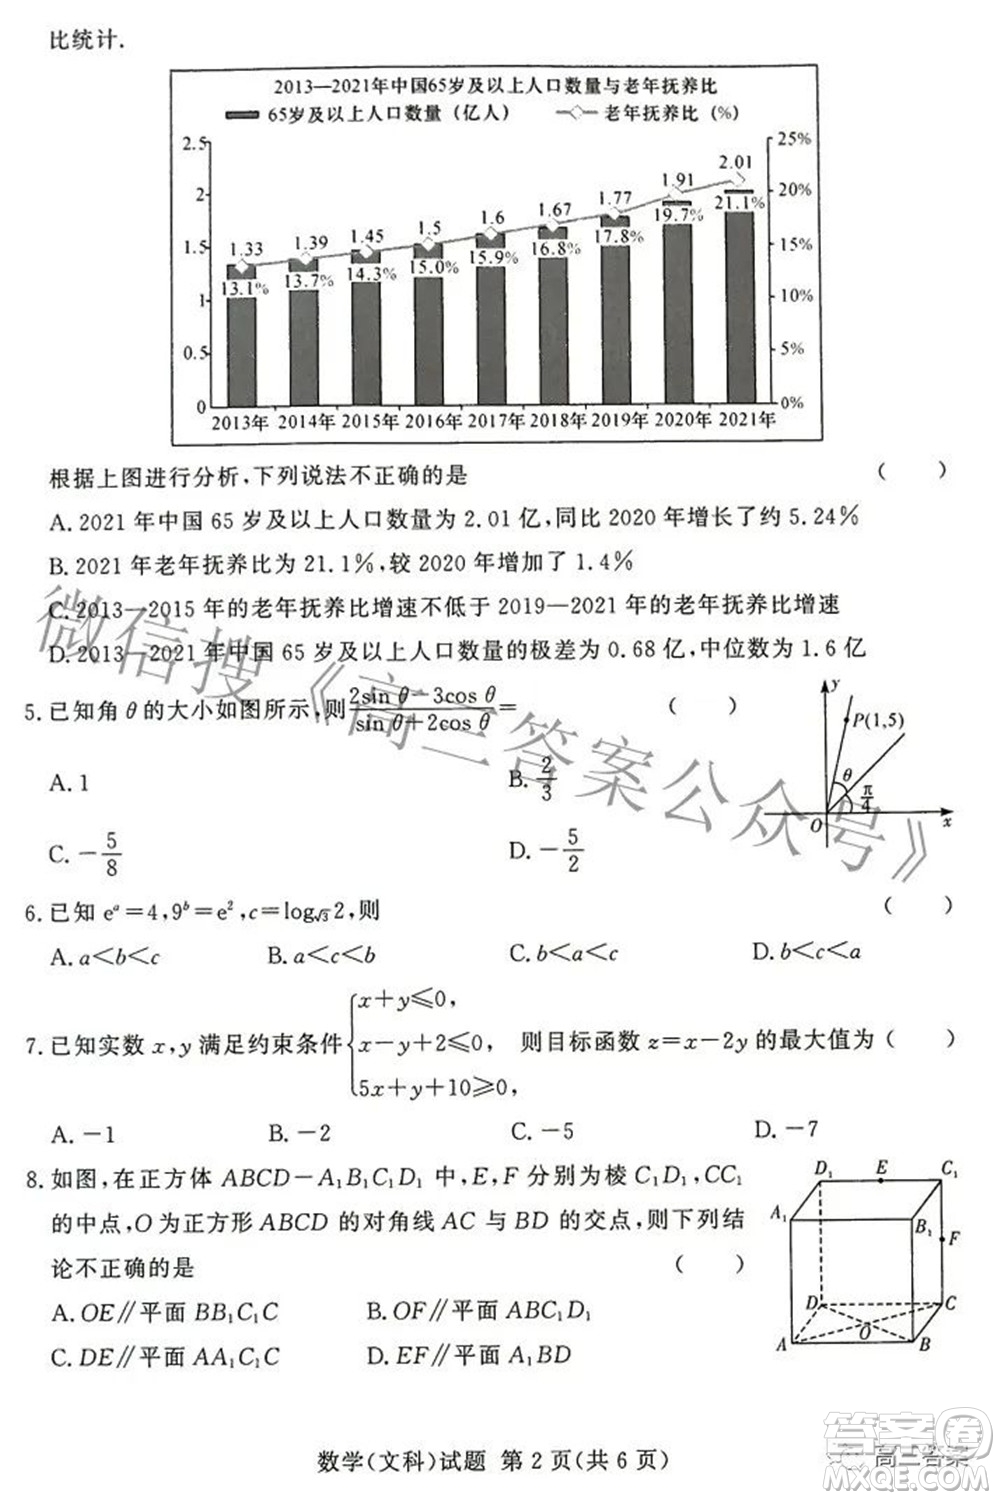 比统计.
2013—2021年中国65岁及以上人口数量与老年抚养比
65岁及以上人口数量（亿人） 老年抚养比（%）
2.5 25%
2 20%
1.5 15%
1 10%
0.5 5%
0 0%
1.33 1.39 1.45 1.5 1.6 1.67 1.77 1.91 2.01
13.1% 13.7% 14.3% 15.0% 15.9% 16.8% 17.8% 19.7% 21.1%
2013年 2014年 2015年 2016年 2017年 2018年 2019年 2020年 2021年
根据上图进行分析,下列说法不正确的是 （ ）
A. 2021 年中国 65 岁及以上人口数量为 2.01 亿,同比 2020 年增长了约 5.24%
B. 2021 年老年抚养比为 21.1%,较 2020 年增加了 1.4%
C. 2013—2015 年的老年抚养比增速不低于 2019—2021 年的老年抚养比增速
D. 2013—2021 年中国 65 岁及以上人口数量的极差为 0.68 亿,中位数为 1.6 亿
5. 已知角 θ 的大小如图所示,则 (2sin θ-3cos θ)/(sin θ-2cos θ) = （ ）
A. 1 B. 2/3
C. -5/8 D. -5/2
y
P(1,5)
θ
π/4
O x
6. 已知 eᵃ=4, 9ᵇ=e², c=log√3 2,则 （ ）
A. a<b<c B. a<c<b C. b<a<c D. b<c<a
7. 已知实数 x,y 满足约束条件 { x+y≤0, x-y+2≤0, 5x+y+10≥0, 则目标函数 z=x-2y 的最大值为 （ ）
A. -1 B. -2 C. -5 D. -7
8. 如图,在正方体 ABCD-A₁B₁C₁D₁ 中,E,F 分别为棱 C₁D₁,CC₁
的中点,O 为正方形 ABCD 的对角线 AC 与 BD 的交点,则下列结
论不正确的是 （ ）
A. OE∥平面 BB₁C₁C B. OF∥平面 ABC₁D₁
C. DE∥平面 AA₁C₁C D. EF∥平面 A₁BD
D₁ E C₁
A₁ B₁ F
D C
A O B
数学(文科)试题 第 2 页(共 6 页)
微信搜《高三答案公众号》
高三答案
答案圈
MXQE.COM